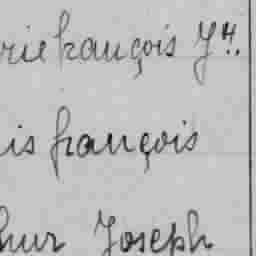 rie françois Jh.
is françois
hur Joseph